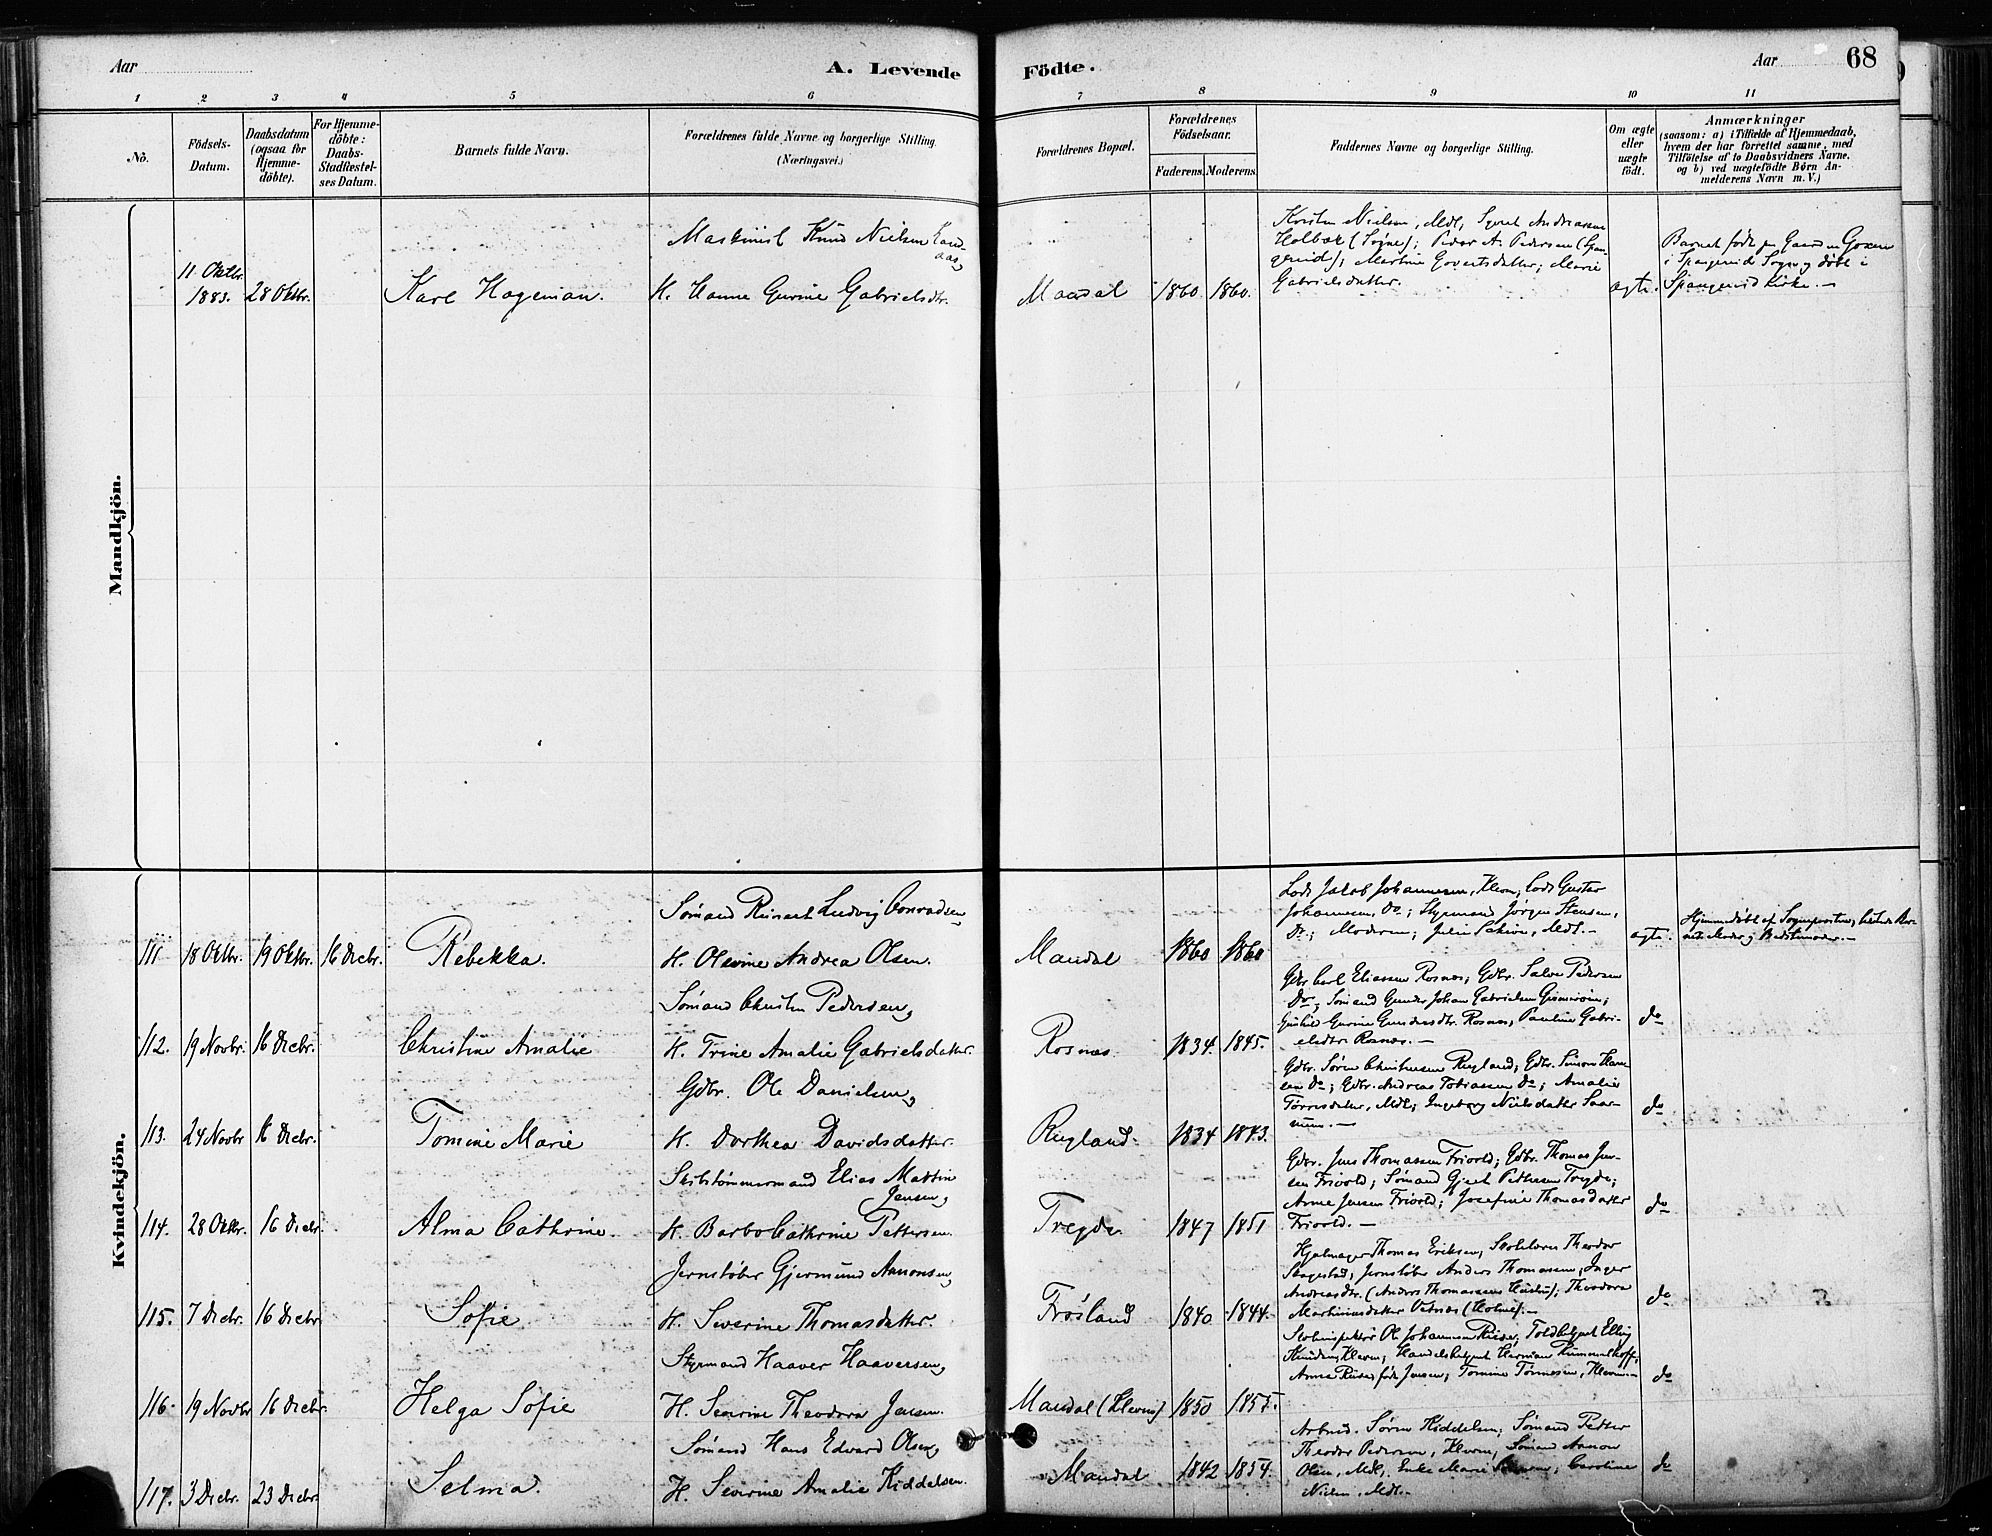 Aar
A. Levende
Födte.
Aar
68
1 2 3 4 5 6 7 8 9 10 11
No.
Födsels-
Datum.
Daabsdatum
(ogsaa for
Hjemme-
döbte).
For Hjemme-
döbte:
Daabs-
Stadfæstel-
ses Datum.
Barnets fulde Navn.
Forældrenes fulde Navne og borgerlige Stilling
(Næringsvei.)
Forældrenes Bopæl.
Forældrenes
Födselsaar.
Faderens. Moderens.
Faddernes Navne og borgerlige Stilling.
Om ægte
eller
uægte
födt.
Anmærkninger
(saasom: a) i Tilfælde af Hjemmedaab,
hvem der har forrettet samme, med
Tilföielse af to Daabsvidners Navne.
og b) ved uægtefödte Börn An-
melderens Navn m. V.)
Mandkjön.
11 Oktbr.
1883.
28 Oktbr.
Karl Hageman.
Maskinist Knud Nielsen
H. Hanne Gurine Gabrielsdtr.
Mandal
1860
1860.
Kristen Nielsen, Mdl, Andreassen
Holbæk (Søgne); Peder A. Pedersen (Span-
gereid); Martine Govertsdatter; Marie
Gabrielsdatter.
ægte.
Barnet født paa Gaarden
i Spangereid Sogn og døbt i
Spangereid Kirke.
Kvindekjön.
111
18 Oktbr.
19 Oktbr.
16 Decbr.
Rebekka.
Sømand Reinert Ludvig Conradsen
H. Olevine Andrea Olsen.
Mandal
1860
1860
Lods Jacob Johannesen, Kleven; Lods Gustav
Johannesen, Do; Styrmand Jørgen Stensen,
Do; Moderen; Mdl.
ægte.
Hjemmedøbt af Sognepresten;
112.
19 Novbr.
16 Decbr.
Christine Amalie
Sømand Christen Pedersen,
H. Trine Amalie Gabrielsdatter.
Rosnæs
1834.
1845.
Gdbr. Carl Eliassen Rosnæs; Gdbr. Salve Pedersen
Do; Sømand Gunder Johan Gabrielsen
Gurine Gundersdtr. Rosnæs, Pauline Gabri-
elsdtr Rosnæs.
do
113.
24 Novbr
16 Decbr.
Tomine Marie
Gdbr. Ole Danielsen,
H. Dorthea Davidsdatter.
Rugland.
1834
1843.
Gdbr. Søren Christensen Rugland; Gdbr. Simon Han-
sen Do; Gdbr. Andreas Tobiassen Do; Amalie
Tørresdatter, Mdl; Ingeborg Nielsdatter Saan-
um.
do
114.
28 Oktbr.
16 Decbr.
Alma Cathrine.
Skibstømmermand Elias Martin
Jensen,
H. Barbo Cathrine Pettersen.
Tregde
1847
1851
Gdbr. Jens Thomassen Frivold; Gdbr. Thomas Jen-
sen Frivold; Sømand Gjert Pettersen Tregde;
Anne Jensen Frivold; Josefine Thomasdatter
Frivold.
do
115.
7 Decbr.
16 Decbr
Sofie
Jernstøber Gjermund Aanonsen,
H. Severine Thomasdatter.
Frøsland
1840
1844.
Hjulmager Thomas Eriksen; Skolelærer Theodor
Skagestad, Jernstøber Anders Thomassen; Inger
Andreasdtr. (Anders Thomassens Hustru); Theodora
Martiniusdatter (Holme).
do
116.
19 Novbr
16 Decbr.
Helga Sofie
Styrmand Haaver Haaversen,
H. Severine Theodora Jensen.
Mandal (Kleven)
1850
1857.
Ole Johannesen Riise; Toldbetjent Elling
Knudsen, Kleven; Handelsbetjent Herman Kummelhoff;
Anna Riise født Jensen; Tomine Tønnesen, Kleven.
do
117.
3 Decbr.
23 Decbr.
Selma.
Sømand Hans Edvard Olsen,
H. Severine Amalie Kiddelsen.
Mandal
1842
1854.
Arbmd. Søren Kiddelsen; Sømand Petter
Theodor Pedersen, Kleven; Sømand Aanon
Olsen, Mdl; Marie Caroline
Nielsen, Mdl.
do